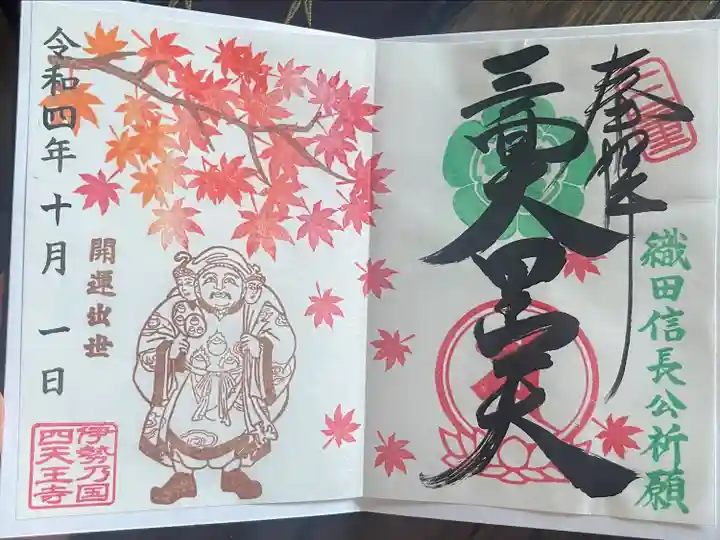 三重
奉拝
織田信長公祈願
三面大黒天
開運出世
令和四年十月一日
伊勢乃国
四天王寺